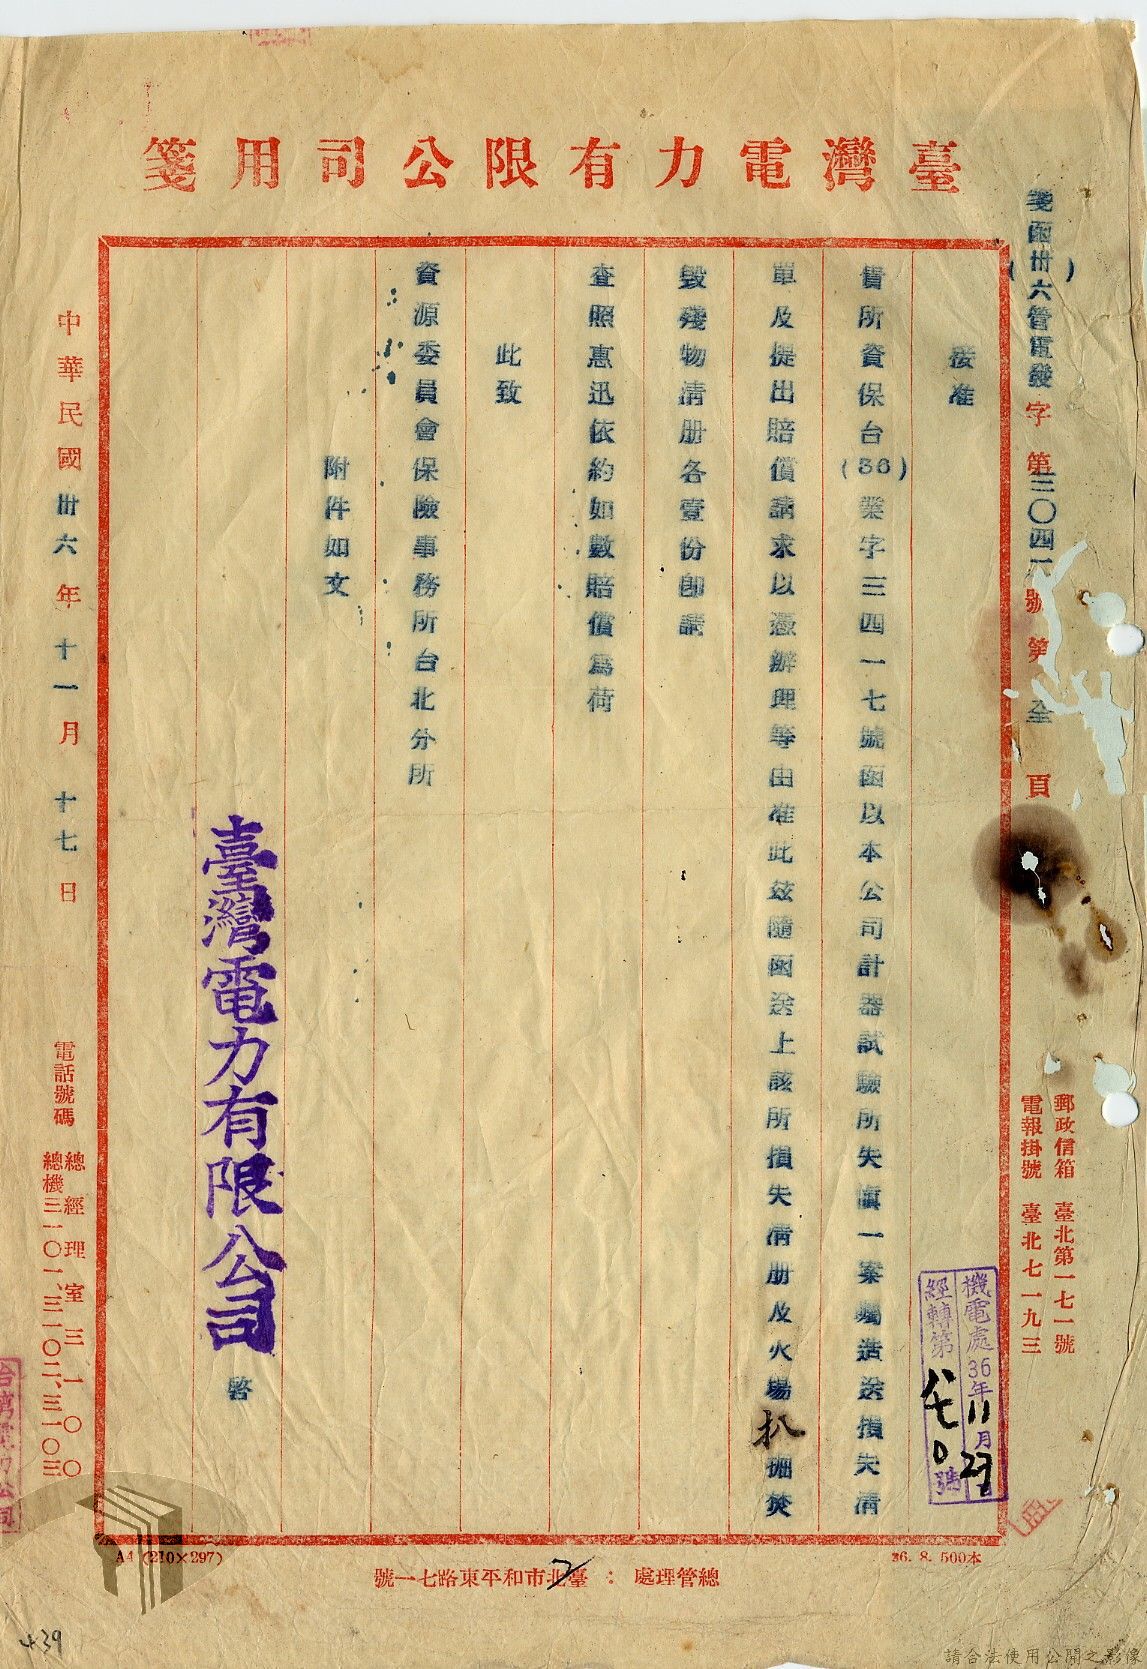 臺灣電力有限公司用箋
箋函(卅六)管電發字第三〇四一號第全頁
郵政信箱 臺北第一七一號
電報掛號 臺北七一九三
機電處36年11月
經轉第號
接准
貴所資保台(36)業字三四一七號函以本公司計器試驗所失慎一案囑造送損失清
單及提出賠償請求以憑辦理等由准此茲隨函送上該所損失清册及火場扒掘焚
毀殘物清册各壹份卽請
查照惠迅依約如數賠償爲荷
此致
資源委員會保險事務所台北分所
附件如文
臺灣電力有限公司 啓
中華民國卅六年十一月十七日
電話號碼
總經理室三一〇〇
總機三一〇一、三一〇二、三一〇三
A4 (210×297)
36. 8. 500本
總管理處：臺北市和平東路七一號
439
請合法使用公開之影像